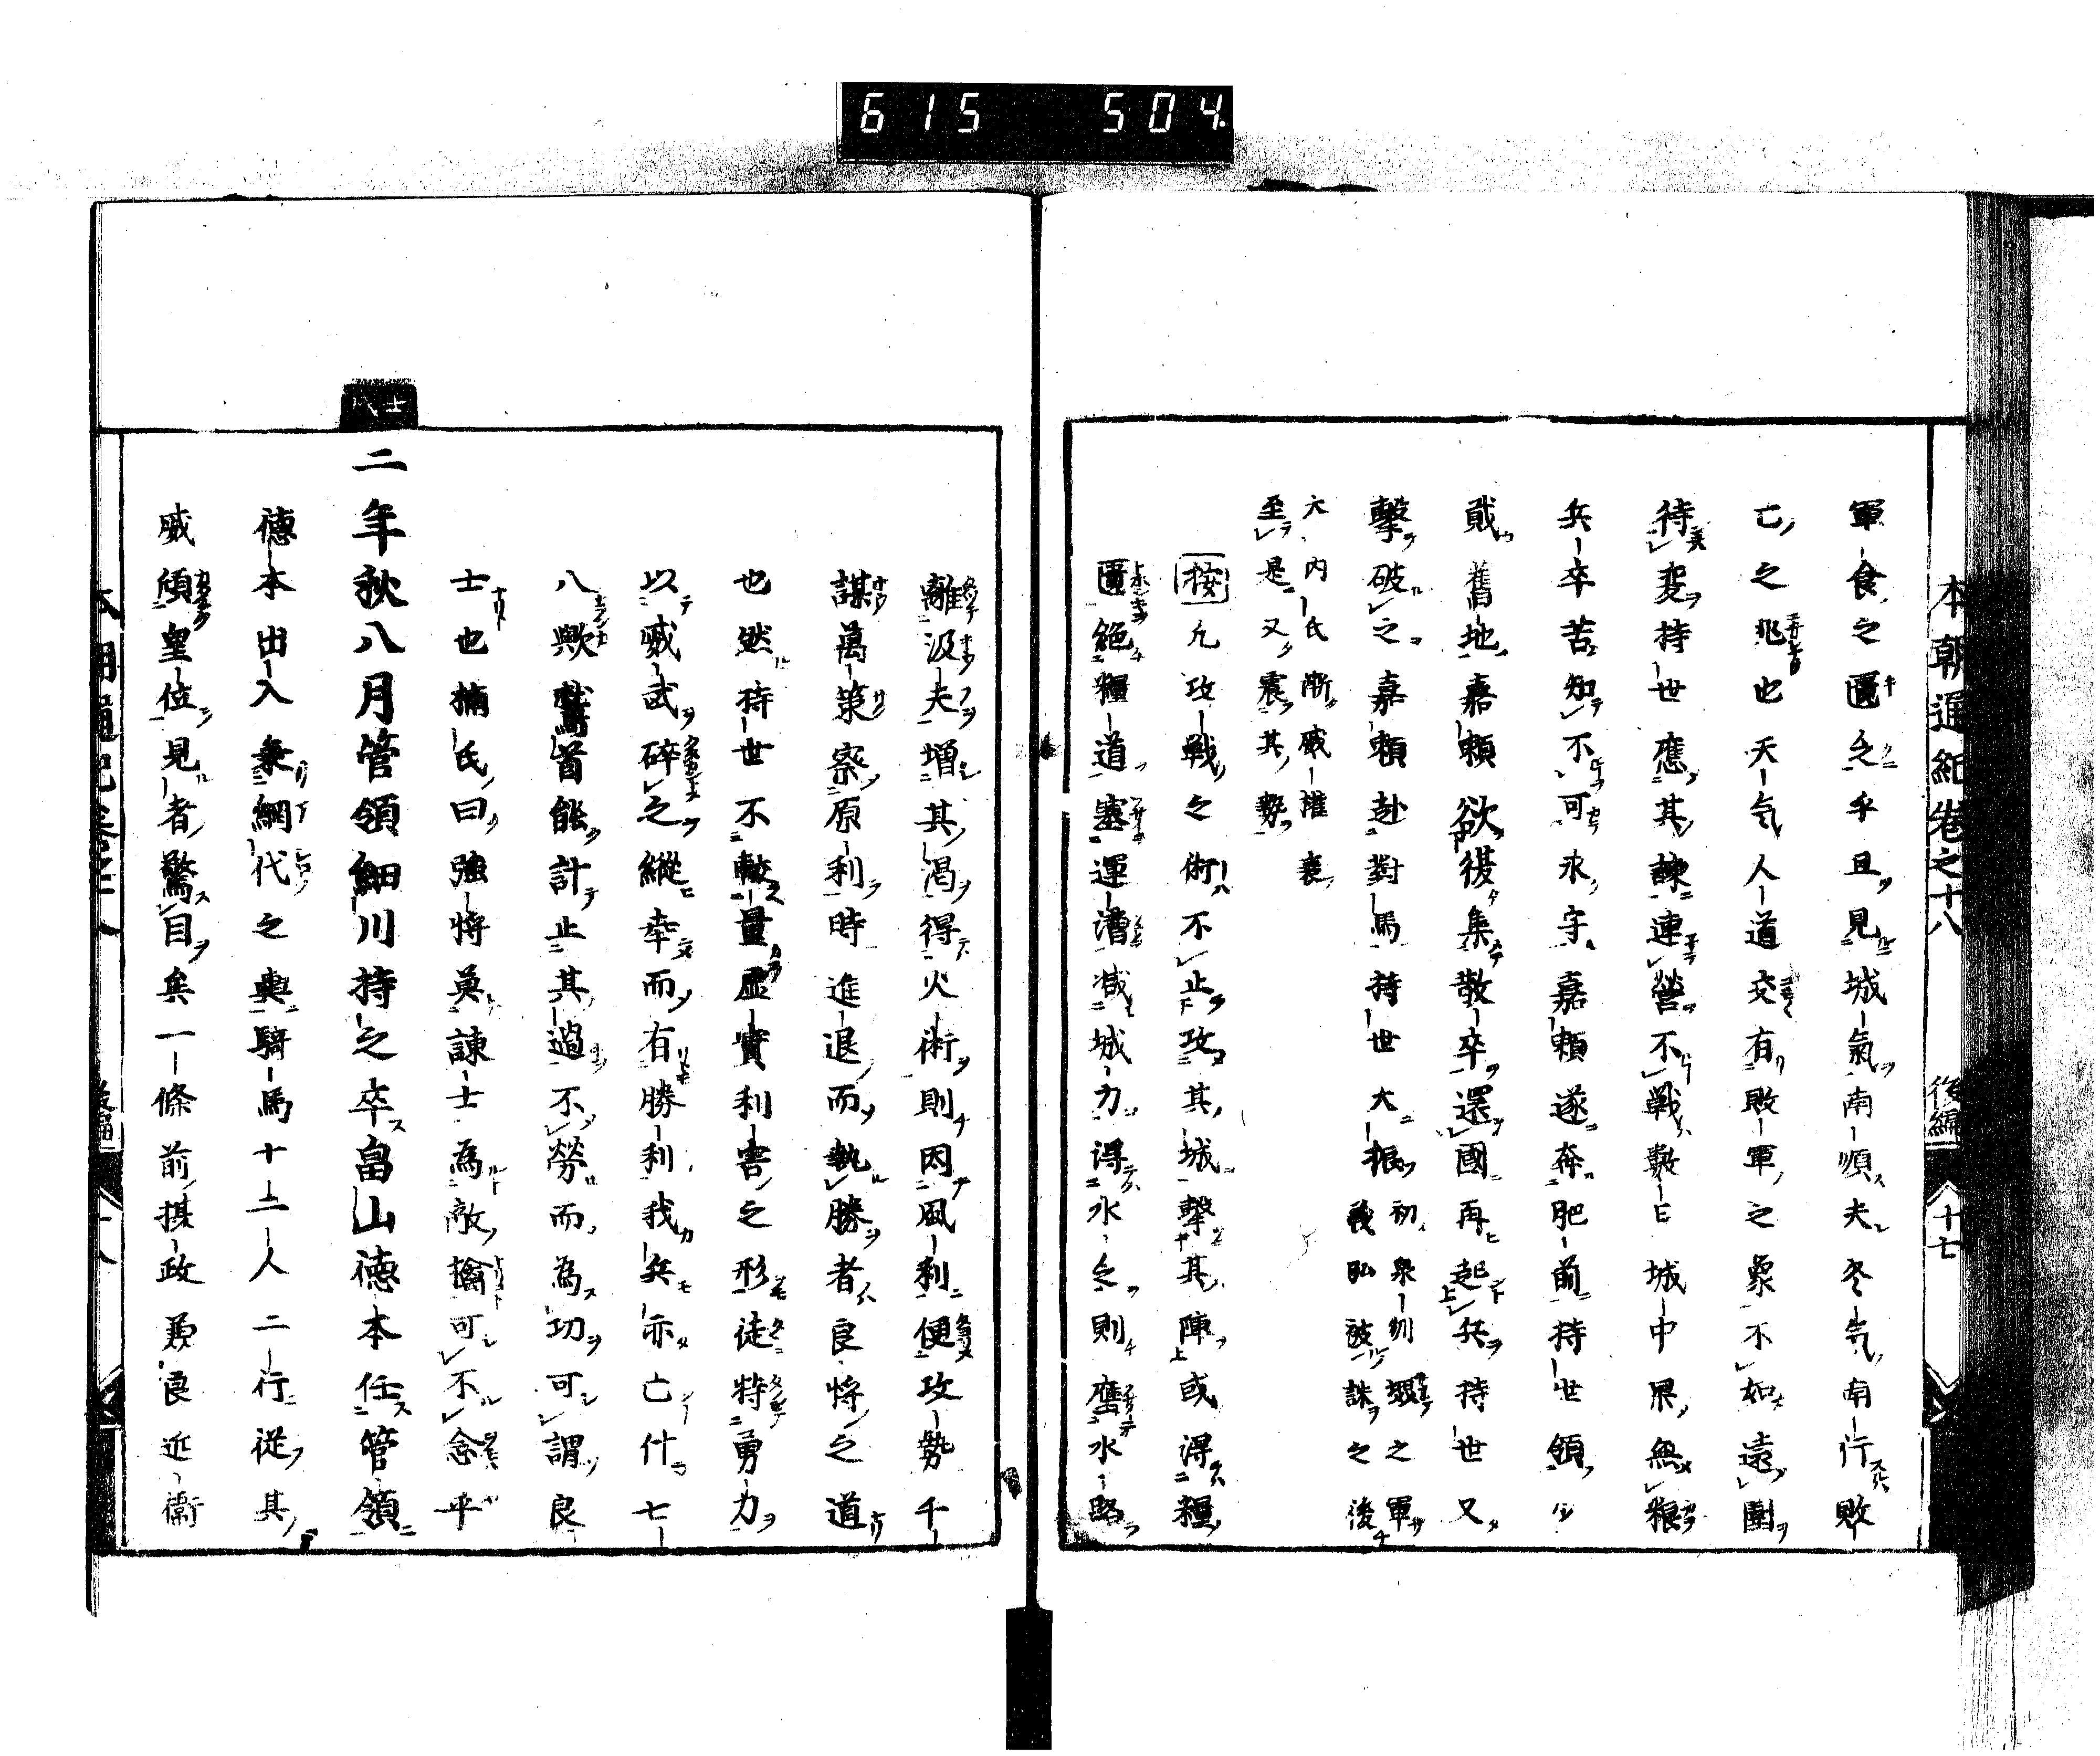 615 504
本朝通紀卷之十八 後編 十七
軍食之匱之乎且見城氣南順夫冬気南行敗
亡之兆也天気人道交有敗軍之象不如遠圍
待変持世應其諌連營不戰數日城中果無粮
兵卒苦知不可永守嘉頼遂奔肥前持世領少
貳舊地嘉頼欲復集散卒還國再起兵持世又
擊破之嘉頼赴對馬持世大振初泉州之軍
義弘被誅之後
大内氏漸威權衰
至是又震其勢
按凡攻戰之術不止攻其城擊其陣或得糧
匱絶糧道塞運漕減城力得水之則應水路
離汲夫增其渇得火術則因風利便攻勢千
謀萬策察原利時進退而執勝者良將之道
也然持世不較量虛實利害之形徒特勇力
以威武碎之縱幸而有勝利我兵亦亡什七
八歟鷲首能計止其過不勞而為功可謂良
士也楠氏曰強將莫諌士為敵擒可不念乎
二年秋八月管領細川持之卒畠山德本任管領
德本出入乗網代之輿騎馬十二人二行從其
威傾皇位見者驚目矣一條前摂政兼良近衞